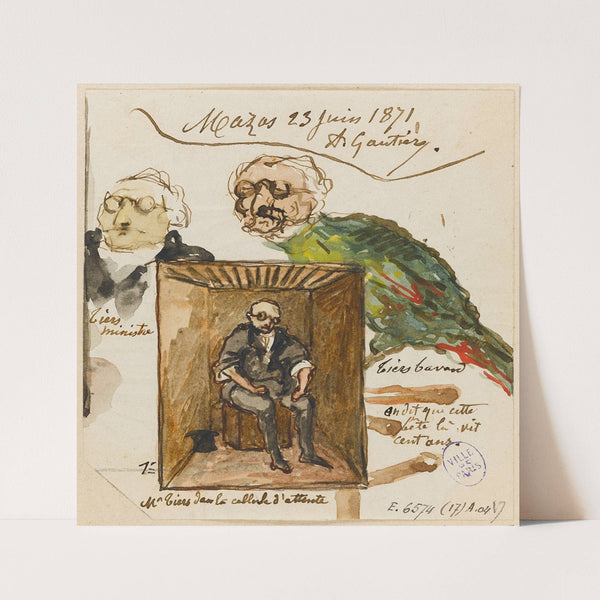 Mazas 23 Juin 1871
A Gautier.
Tiers
ministre
Tiers bavard
on dit que cette
bête là vit
cent ans.
VILLE
DE
PARIS
Mr Tiers dans la cellule d'attente
E. 6574 (17) A.04